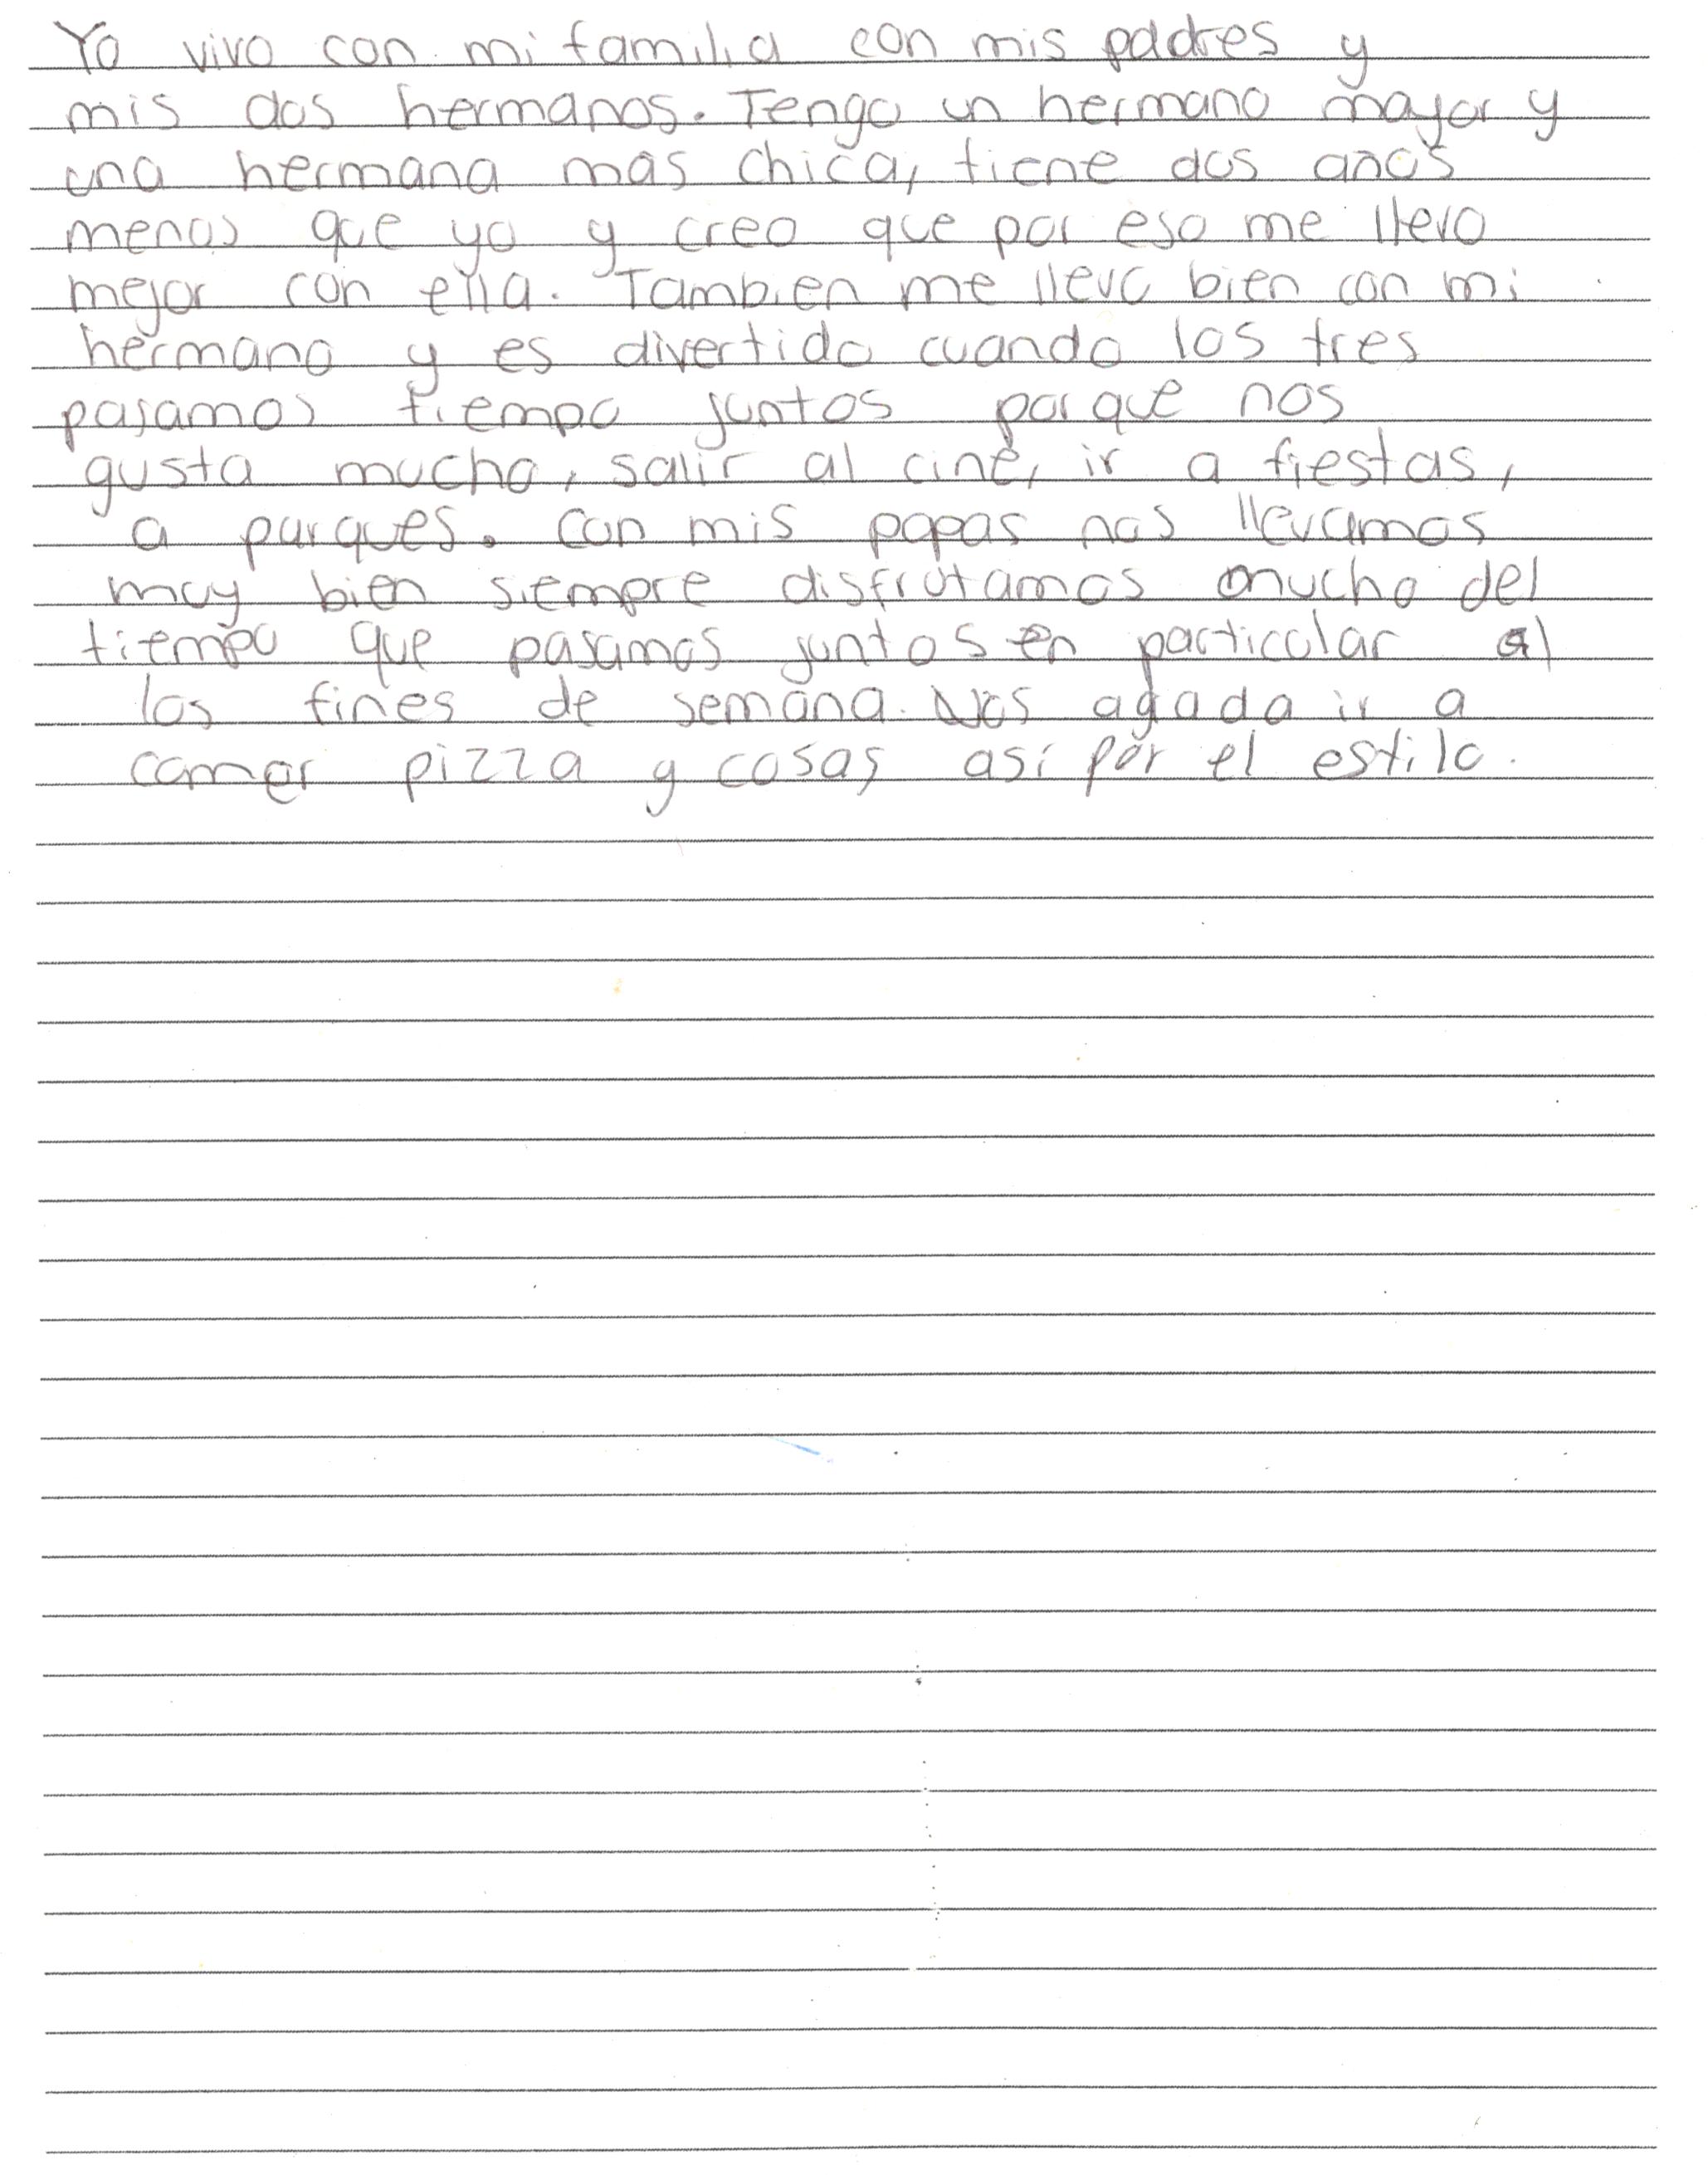 Yo vivo con mi familia con mis padres y
mis dos hermanos. Tengo un hermano mayor y
una hermana mas chica, tiene dos años
menos que yo y creo que por eso me llevo
mejor con ella. Tambien me llevo bien con mi
hermano y es divertido cuando los tres
pasamos tiempo juntos porque nos
gusta mucho, salir al cine, ir a fiestas,
a parques. Con mis papas nos llevamos
muy bien siempre disfrutamos mucho del
tiempo que pasamos juntos en particular al
los fines de semana. Nos agada ir a
comer pizza y cosas así por el estilo.